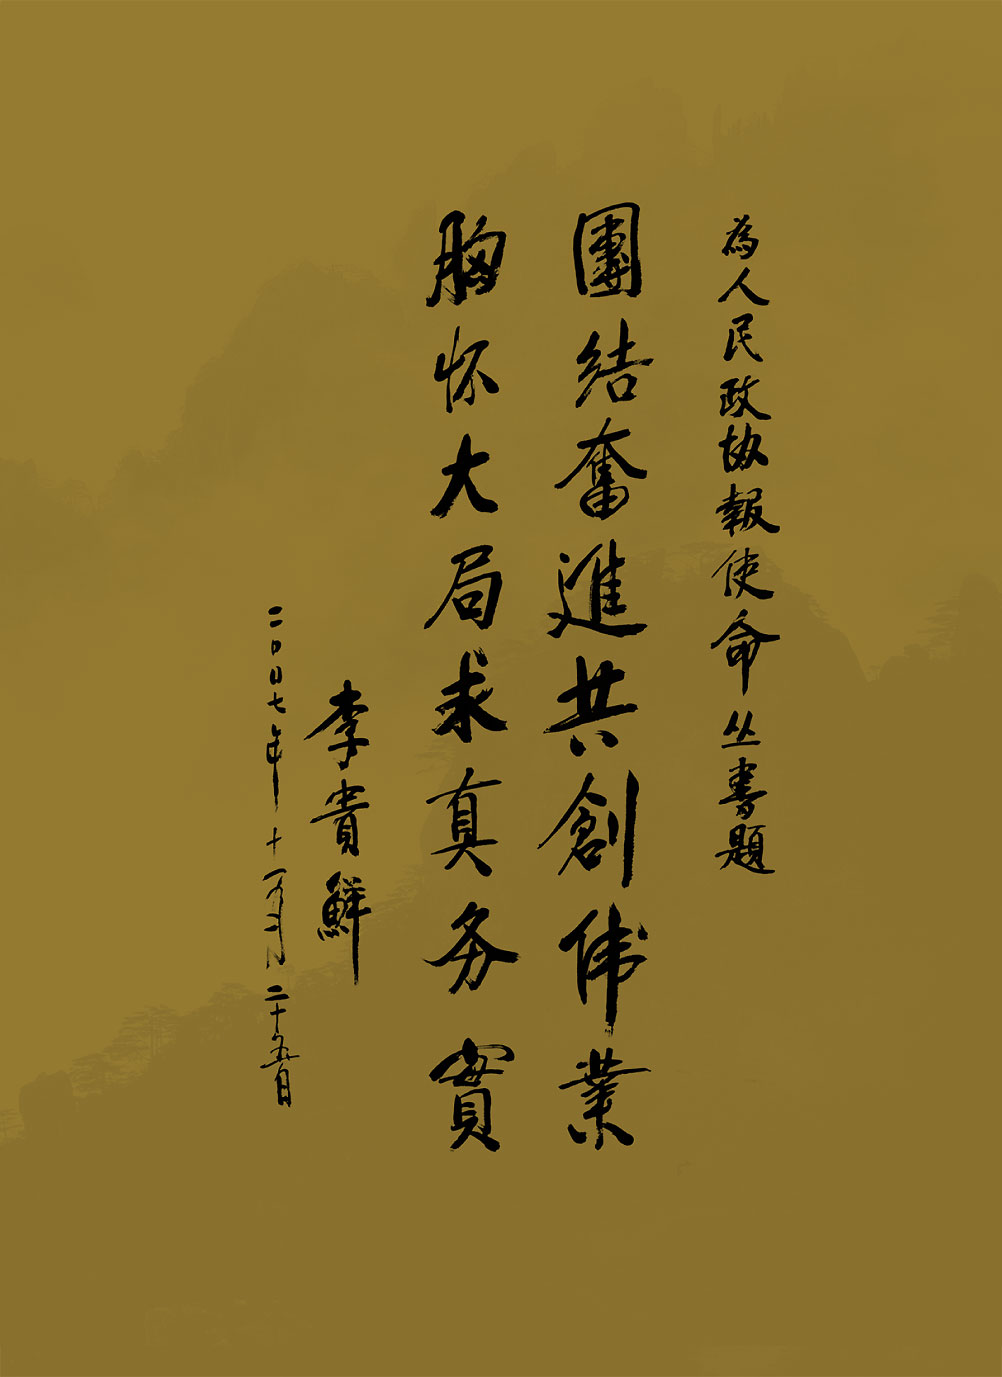 為人民政协報使命丛書題
團结奮進共創伟業
胸怀大局求真务實
李貴鮮
二〇〇七年十一月二十五日